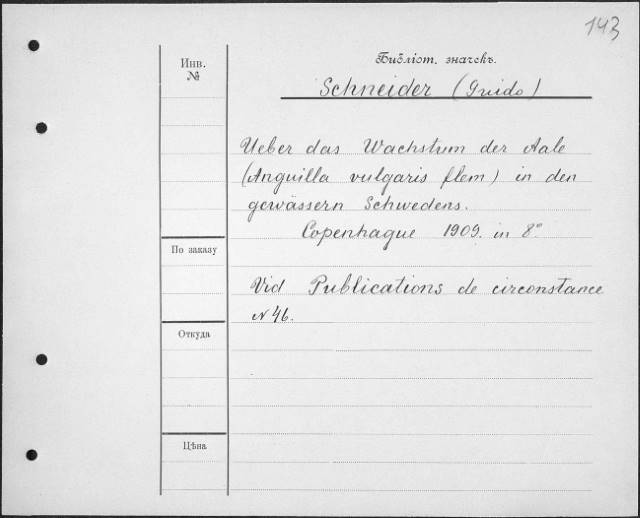 143
Библіот. значекъ.
Инв.
№
Schneider (Guido)
Ueber das Wachstum der Aale
(Anguilla vulgaris flem) in den
gewässern Schwedens.
Copenhague 1909. in 8°
По заказу
Vid Publications de circonstance
N 46.
Откуда
Цѣна